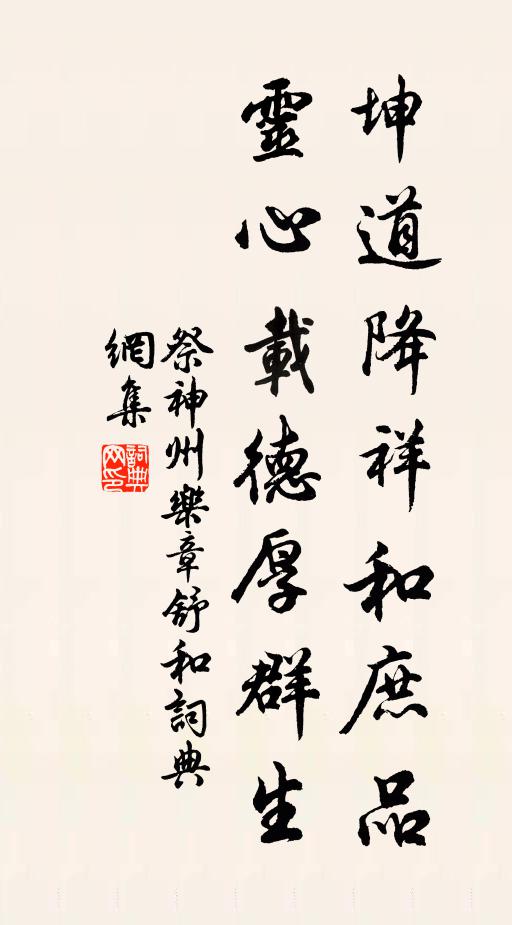 坤道降祥和庶品
靈心載德厚群生
祭神州樂章舒和詞典
網集
詞典
网印